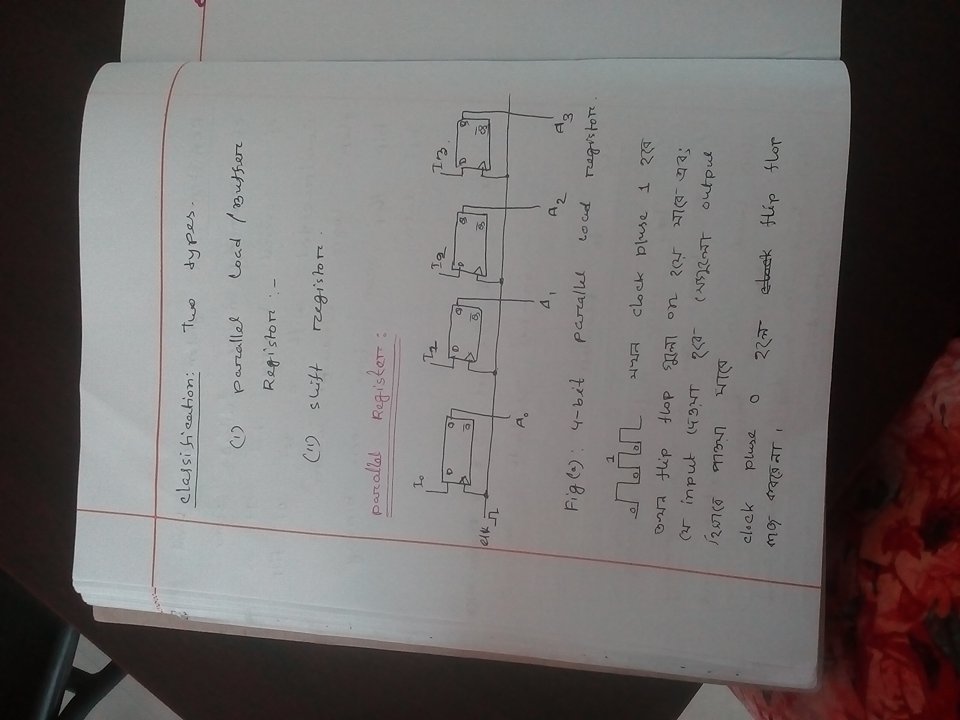 Classification: Two types.
(i) parallel Load / Buffer
Registor :-
(ii) shift registor.
parallel Register:
I0 I1 I2 I3
D Q D Q D Q D Q
Q̅ Q̅ Q̅ Q̅
clk
A0 A1 A2 A3
Fig(a): 4-bit parallel load registor.
1
0 0 0 যখন clock pluse 1 হবে
তখন flip flop গুলো on হয়ে যাবে এবং
যে input দেওয়া হবে সেগুলো output
হিসাবে পাওয়া যাবে
clock pluse 0 হলে clock flip flop
কাজ করবেনা।